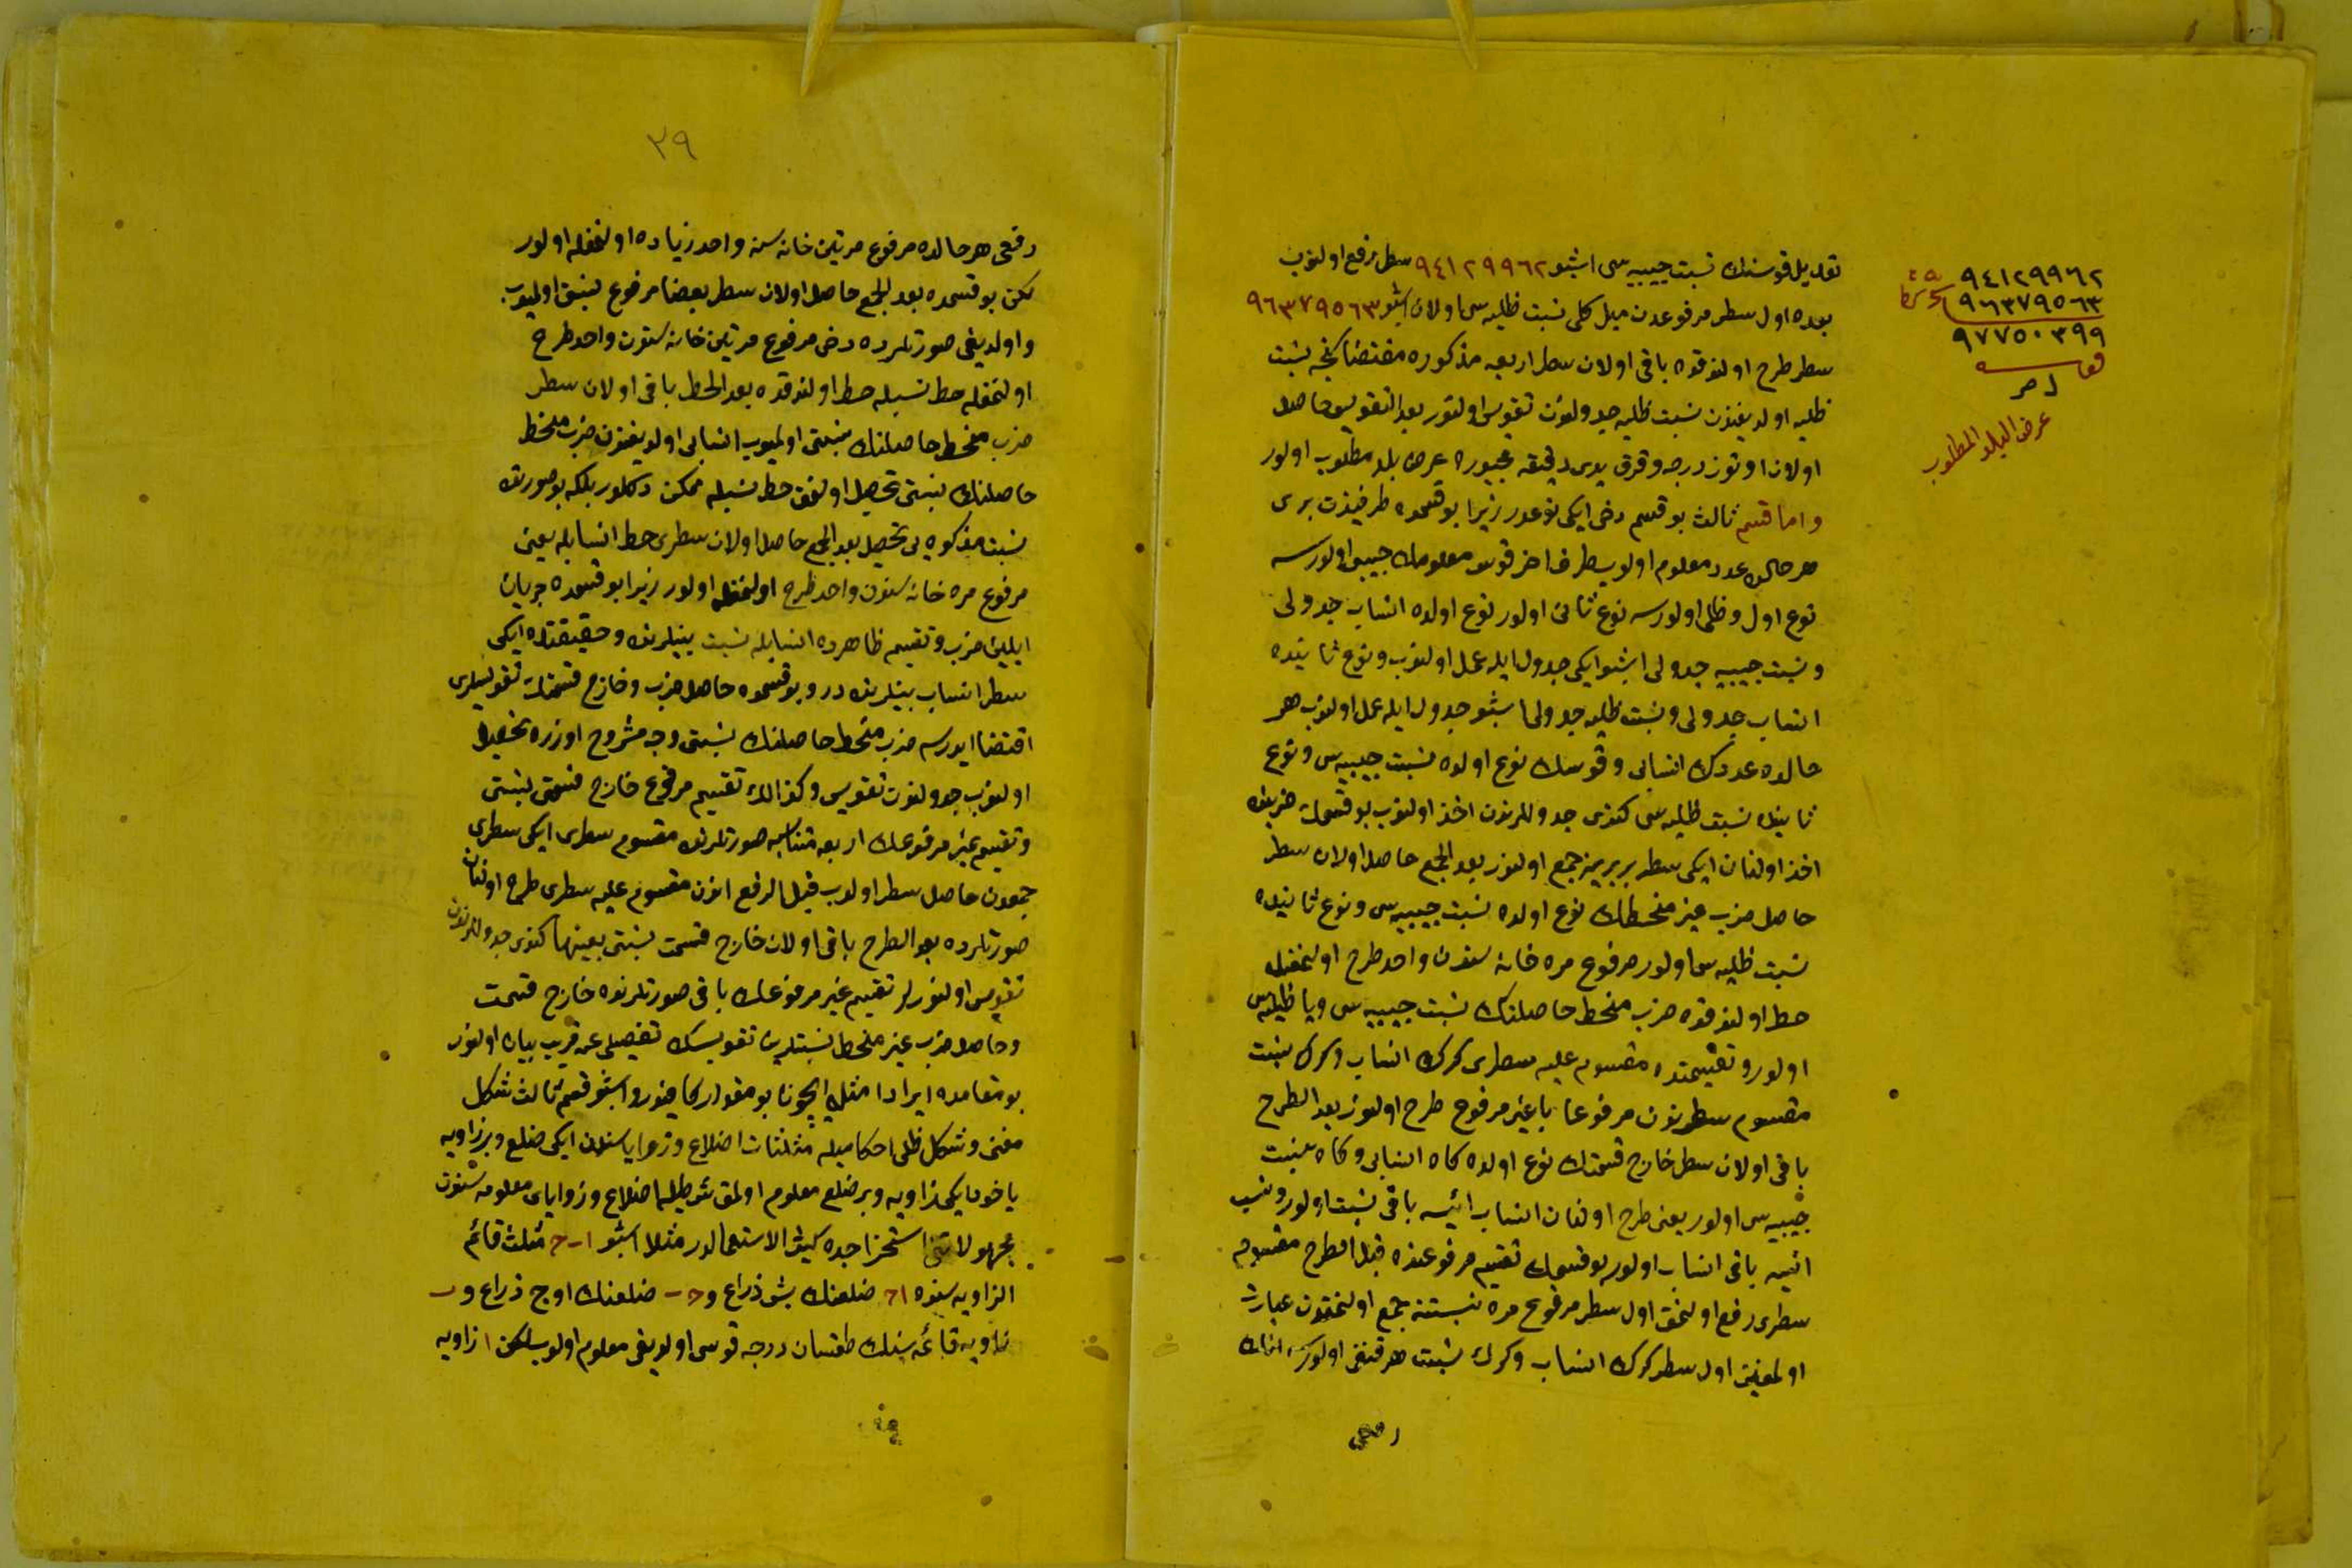 تعديل قوسنك نسبت جيبيه سى اشبو ٩٤١٢٩٩٦٢ سطر رفع اولنوب
بعده اول سطر مرفوعدن ميل كلى نسبت ظليه سى اولان اشبو ٩٦٣٧٩٥٦٣
سطر طرح اولندقده باقى اولان سطر اربعه مذكوره مقتضاسنجه نسبت
ظليه اولديغندن نسبت ظليه جدولندن تقويس اولنور بعد التقويس حاصل
اولان اوتوز درجه وقرق يدى دقيقه مجبوره عرض بلد مطلوب اولور
واما قسم ثالث بو قسم دخى ايكى نوعدر زيرا بو قسمده طرفيندن برى
هر حالده عدد معلوم اولوب طرف اخر قوس معلومك جيبى اولورسه
نوع اول وظلى اولورسه نوع ثانى اولور نوع اولده انساب جدولى
ونسبت جيبيه جدولى اشبو ايكى جدول ايله عمل اولنوب ونوع ثانيده
انساب جدولى ونسبت ظليه جدولى اشبو جدول ايله عمل اولنوب هر
حالده عددك انسابى وقوسك نوع اولده نسبت جيبيه سى ونوع
ثانيده نسبت ظليه سى كندى جدوللرندن اخذ اولنوب بو قسمك ضربنده
اخذ اولنان ايكى سطر بربرينه جمع اولنور بعد الجمع حاصل اولان سطر
حاصل ضرب غير منحطك نوع اولده نسبت جيبيه سى ونوع ثانيده
نسبت ظليه سى اولور مرفوع مره خانه سندن واحد طرح اولنمغله
حط اولندقده ضرب منحط حاصلنك نسبت جيبيه سى ويا ظليه سى
اولور وتقسيمنده مقسوم عليه سطرى كرك انساب وكرك نسبت
مقسوم سطرندن مرفوعا يا غير مرفوع طرح اولنور بعد الطرح
باقى اولان سطر خارج قسمتك نوع اولده كاه انسابى وكاه نسبت
جيبيه سى اولور يعنى طرح اولنان انساب ايسه باقى نسبت اولور ونسبت
ايسه باقى انساب اولور بو قسمك تقسيم مرفوعنده قبل الطرح مقسوم
سطرى رفع اولنمق اول سطر مرفوع مره نسبتنه جمع اولنمقدن عبارت
اولمغين اول سطر كرك انساب وكرك نسبت هر قنغى اولورسه انك
رفعى
٩٤١٢٩٩٦٢
٩٦٣٧٩٥٦٣
٩٧٧٥٠٣٩٩
قوسه
ل مر
عرض البلد المطلوب
٢٩
رفعى هر حالده مرفوع مرتين خانه سنه واحد زياده اولنمغله اولور
لكن بو قسمده بعد الجمع حاصل اولان سطر بعضا مرفوع نسبتى اوليوب
واولديغى صورتلرده دخى مرفوع مرتين خانه سندن واحد طرح
اولنمغله حط نسبله حط اولندقده بعد الحط باقى اولان سطر
ضرب منحط حاصلنك نسبتى اولميوب انسابى اولديغندن ضرب منحط
حاصلنك نسبتى تحصيل اولنمق حط نسبله ممكن دكلدر بلكه بو صورتده
نسبت مذكوره يى تحصيل بعد الجمع حاصل اولان سطرى حط انسابله يعنى
مرفوع مره خانه سندن واحد طرح اولنمغله اولور زيرا بو قسمده جريان
ايلين ضرب وتقسيم ظاهرده انسابله نسبت بينلرنده وحقيقتده ايكى
سطر انساب بينلرنده در وبو قسمده حاصل ضرب وخارج قسمتك تقويسلرى
اقتضا ايدرسه ضرب منحط حاصلنك نسبتى وجه مشروح اوزره تحصيل
اولنوب جدولندن تقويس وكذالك تقسيم مرفوع خارج قسمتى نسبتى
وتقسيم غير مرفوعك اربعه متناسبه صورتلرنده مقسوم سطرى ايكى سطرى
جمعدن حاصل سطر اولوب قبل الرفع اندن مقسوم عليه سطرى طرح اولنان
صورتلرده بعد الطرح باقى اولان خارج قسمت نسبتى بعينها كندى جدوللرندن
تقويس اولنور لر تقسيم غير مرفوعك باقى صورتلرنده خارج قسمت
وحاصل ضرب غير منحط نسبتلرينك تقويسك تفصيلى عن قريب بيان اولنور
بو مقامده ايرادا مثله ايچون بو مقدار كافيدر واشبو قسم ثالث شكل
مغنى وشكل ظلى احكاميله مثلثات اضلاع وزواياسندن ايكى ضلع وبر زاويه
ياخود ايكى زاويه وبر ضلع معلوم اولمق شرطيله اضلاع وزواياى معلومه سندن
مجهولاتنى استخراجده كثير الاستعمالدر مثلا اشبو ا ب ح مثلث قائم
الزاويه سنده ا ح ضلعنك بش ذراع و ح ب ضلعنك اوچ ذراع و ب
زاويه قائمه سنك طقسان درجه قوسى اولديغى معلوم اولوب لكن ا زاويه